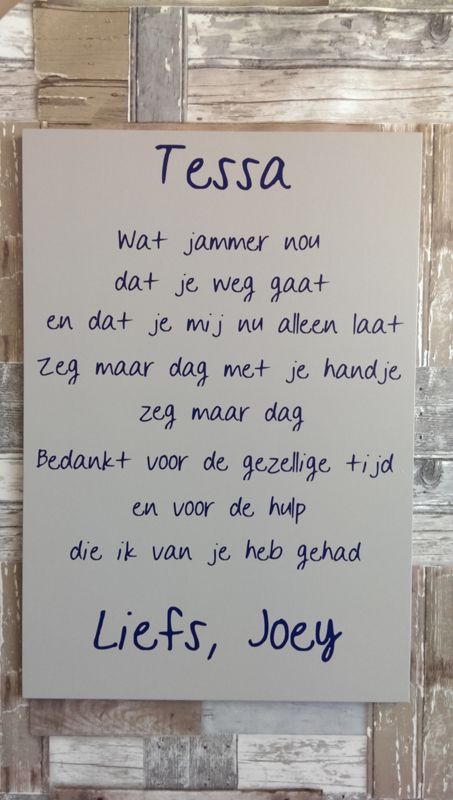 Tessa
Wat jammer nou
dat je weg gaat
en dat je mij nu alleen laat
Zeg maar dag met je handje
zeg maar dag
Bedankt voor de gezellige tijd
en voor de hulp
die ik van je heb gehad
Liefs, Joey